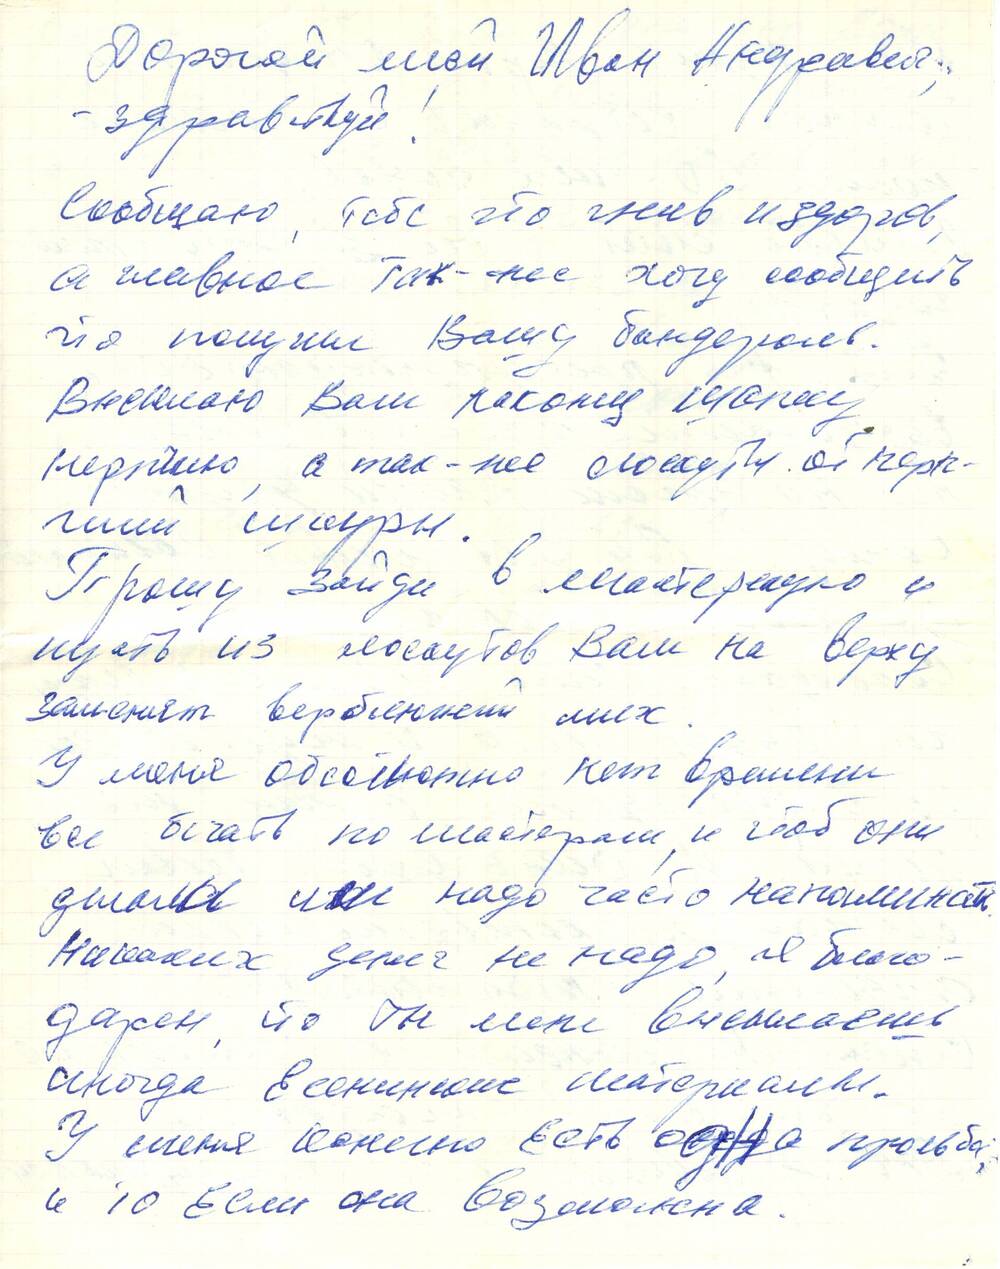 Дорогой мой Иван Андреевич,
- здравствуй!
Сообщаю, тебе что жив и здоров,
а главное так-же хочу сообщить
что получил Вашу бандероль.
Высылаю Вам наконец шапку
нерпичью, а так-же лоскуты от нерпи-
чьей шкуры.
Прошу зайди в мастерскую и
пусть из лоскутов Вам на верху
заменят верблюжий мех.
У меня абсолютно нет времени
все бегать по мастерам, и чтоб они
делали им надо часто напоминать.
Никаких денег не надо, я благо-
дарен, что ты мне высылаешь
иногда Есенинские материалы.
У меня конечно есть одна просьба,
и то если она возможна.